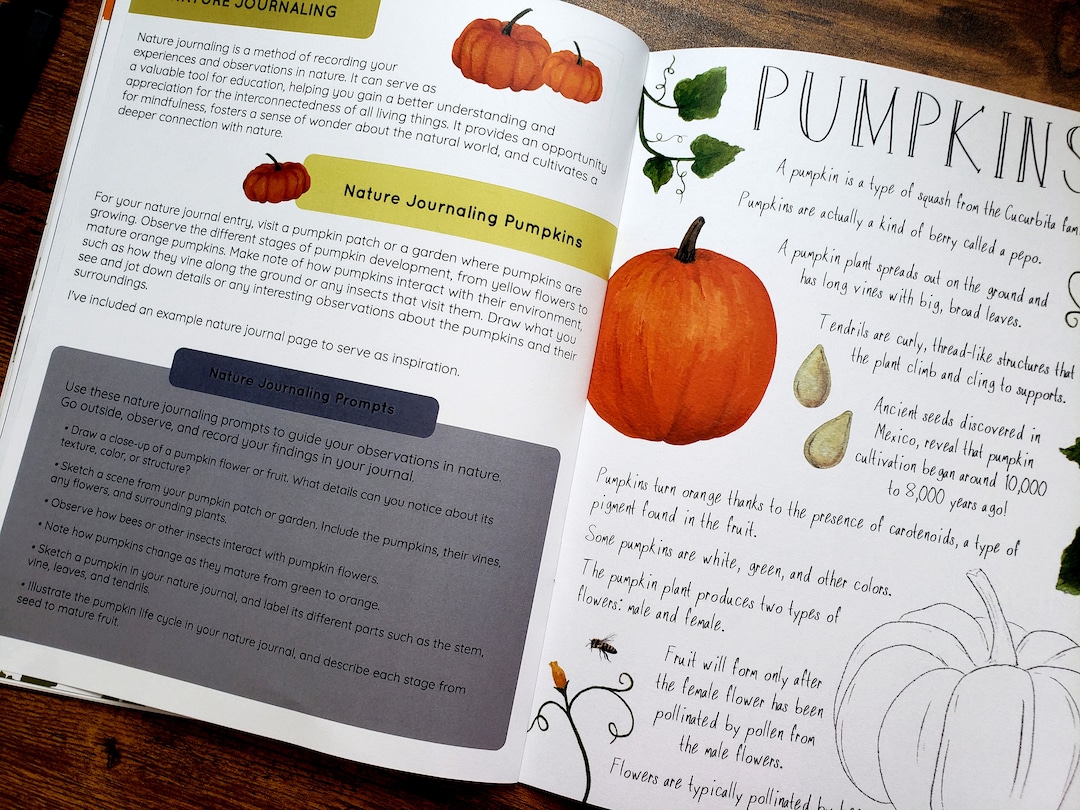 NATURE JOURNALING
Nature journaling is a method of recording your
experiences and observations in nature. It can serve as
a valuable tool for education, helping you gain a better understanding and
appreciation for the interconnectedness of all living things. It provides an opportunity
for mindfulness, fosters a sense of wonder about the natural world, and cultivates a
deeper connection with nature.
Nature Journaling Pumpkins
For your nature journal entry, visit a pumpkin patch or a garden where pumpkins are
growing. Observe the different stages of pumpkin development, from yellow flowers to
mature orange pumpkins. Make note of how pumpkins interact with their environment,
such as how they vine along the ground or any insects that visit them. Draw what you
see and jot down details or any interesting observations about the pumpkins and their
surroundings.
I've included an example nature journal page to serve as inspiration.
Nature Journaling Prompts
Use these nature journaling prompts to guide your observations in nature.
Go outside, observe, and record your findings in your journal.
• Draw a close-up of a pumpkin flower or fruit. What details can you notice about its
texture, color, or structure?
• Sketch a scene from your pumpkin patch or garden. Include the pumpkins, their vines,
any flowers, and surrounding plants.
• Observe how bees or other insects interact with pumpkin flowers.
• Note how pumpkins change as they mature from green to orange.
• Sketch a pumpkin in your nature journal, and label its different parts such as the stem,
vine, leaves, and tendrils.
• Illustrate the pumpkin life cycle in your nature journal, and describe each stage from
seed to mature fruit.
PUMPKINS
A pumpkin is a type of squash from the Cucurbita
Pumpkins are actually a kind of berry called a pepo.
A pumpkin plant spreads out on the ground and
has long vines with big, broad leaves.
Tendrils are curly, thread-like structures that
the plant climb and cling to supports.
Ancient seeds discovered in
Mexico, reveal that pumpkin
cultivation began around 10,000
to 8,000 years ago!
Pumpkins turn orange thanks to the presence of carotenoids, a type of
pigment found in the fruit.
Some pumpkins are white, green, and other colors.
The pumpkin plant produces two types of
flowers: male and female.
Fruit will form only after
the female flower has been
pollinated by pollen from
the male flowers.
Flowers are typically pollinated by